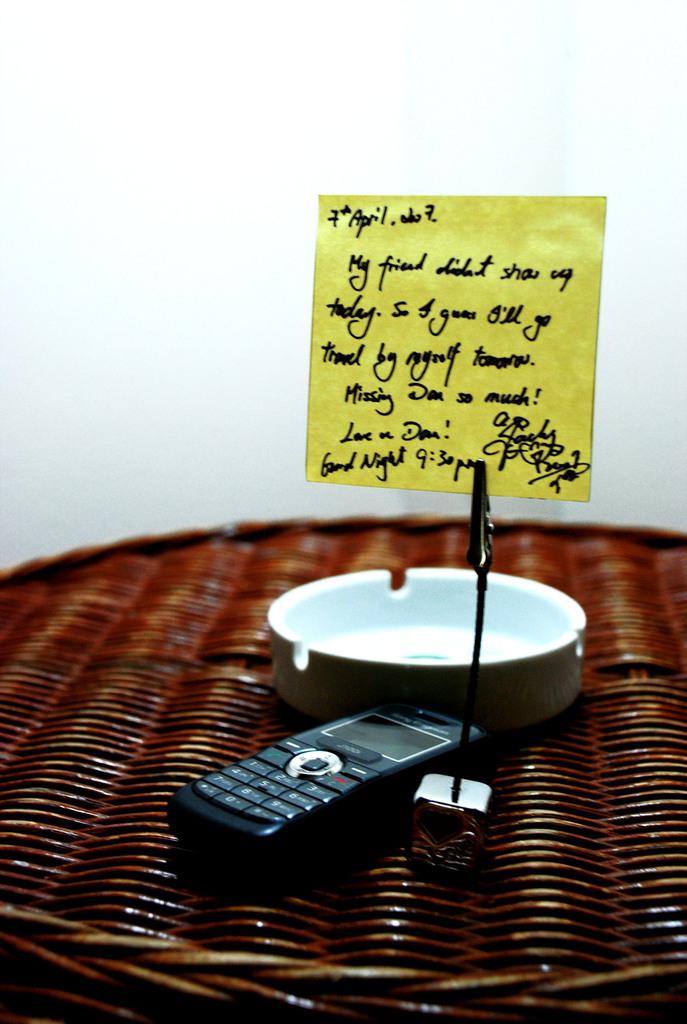 7th April. 2007.
My friend didn't show up
today. So I guess I'll go
travel by myself tomorrow.
Missing Dan so much!
Love u Dan!
Good Night 9:30 pm